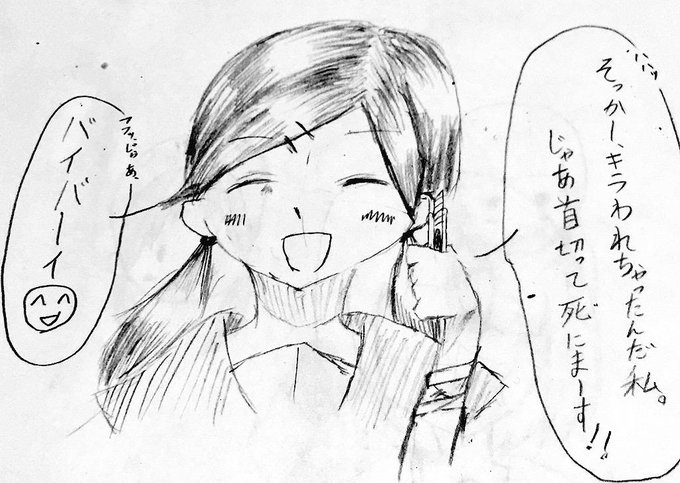 ハハッ
そっかー、キラわれちゃったんだ私。
じゃあ首切って死にまーす!!
じゃあ、
バイバーイ